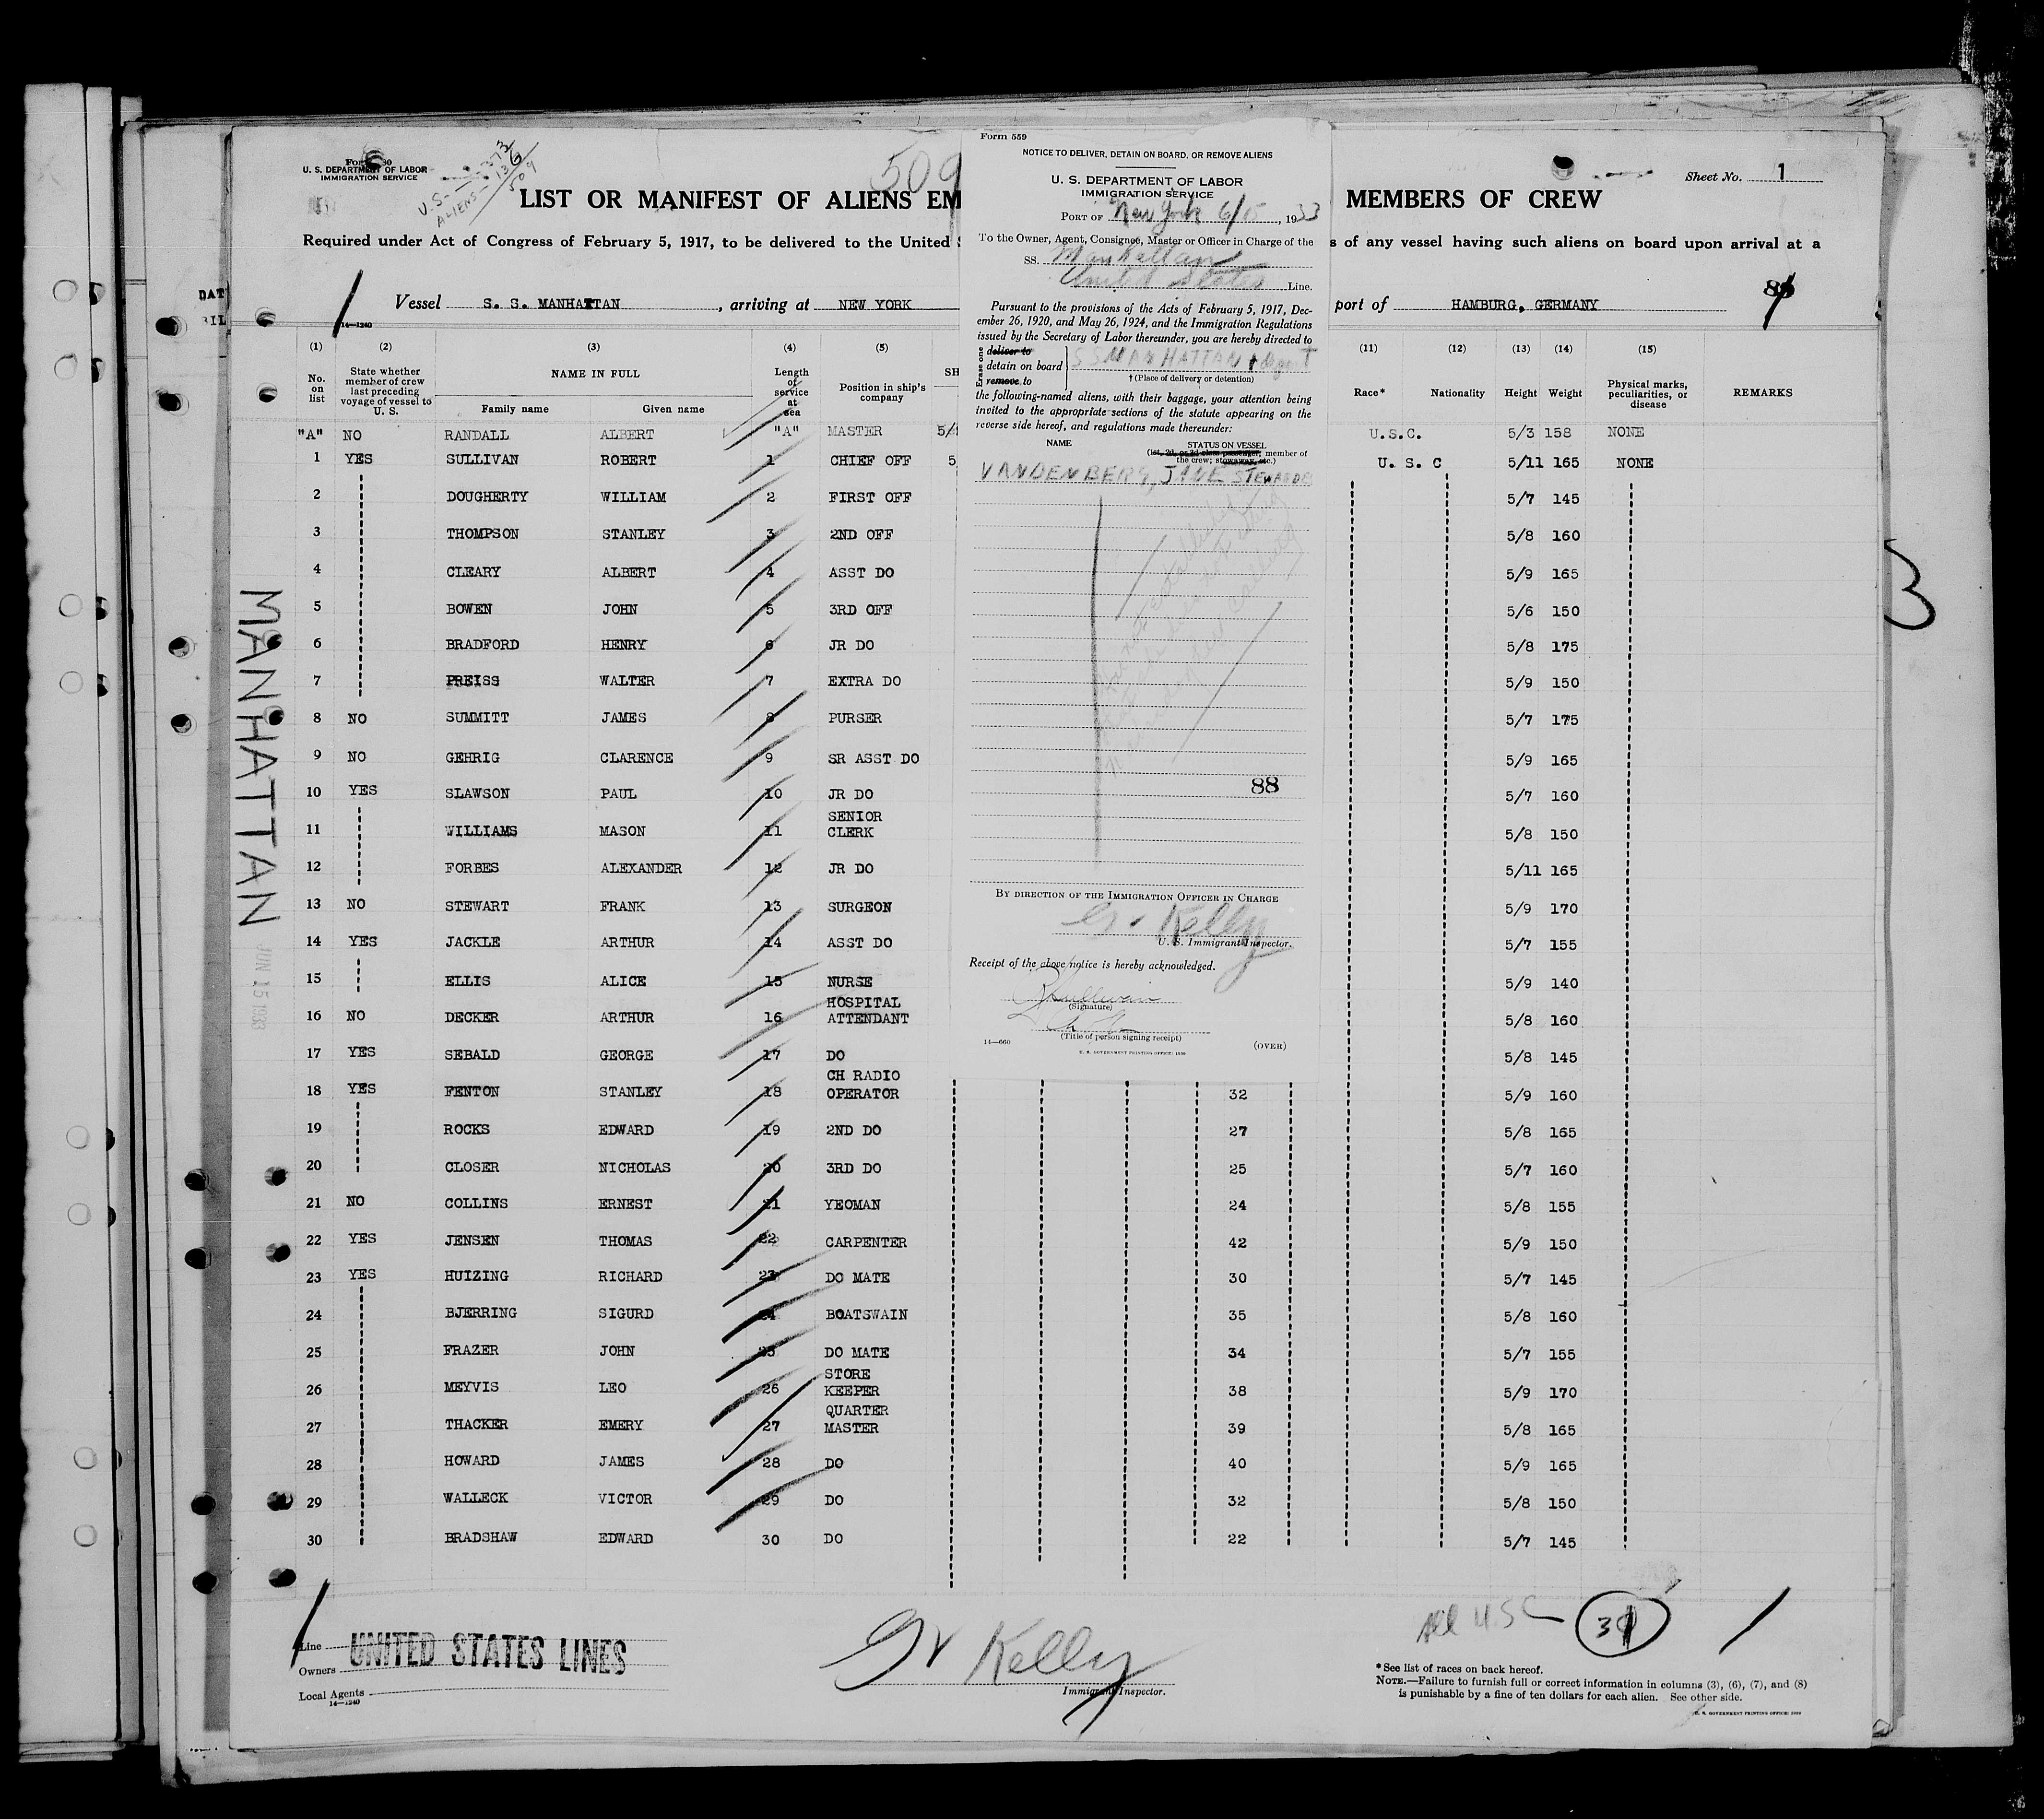 U. S. DEPARTMENT OF LABOR
IMMIGRATION SERVICE
U.S. - 373
ALIENS - 136
509
509
Sheet No. 1
LIST OR MANIFEST OF ALIENS EM
MEMBERS OF CREW
Required under Act of Congress of February 5, 1917, to be delivered to the United S
s of any vessel having such aliens on board upon arrival at a
Vessel S. S. MANHATTAN, arriving at NEW YORK
port of HAMBURG, GERMANY
14—1240
(1) (2) (3) (4) (5) (11) (12) (13) (14) (15)
No. on list
State whether member of crew last preceding voyage of vessel to U. S.
NAME IN FULL
Family name Given name
Length of service at sea
Position in ship's company
SH
Race* Nationality Height Weight
Physical marks, peculiarities, or disease
REMARKS
"A" NO RANDALL ALBERT "A" MASTER 5/ U.S.C. 5/3 158 NONE
1 YES SULLIVAN ROBERT 1 CHIEF OFF 5 U. S. C 5/11 165 NONE
2 DOUGHERTY WILLIAM 2 FIRST OFF 5/7 145
3 THOMPSON STANLEY 3 2ND OFF 5/8 160
4 CLEARY ALBERT 4 ASST DO 5/9 165
5 BOWEN JOHN 5 3RD OFF 5/6 150
6 BRADFORD HENRY 6 JR DO 5/8 175
7 PREISS WALTER 7 EXTRA DO 5/9 150
8 NO SUMMITT JAMES 8 PURSER 5/7 175
9 NO GEHRIG CLARENCE 9 SR ASST DO 5/9 165
10 YES SLAWSON PAUL 10 JR DO 5/7 160
11 WILLIAMS MASON 11 SENIOR CLERK 5/8 150
12 FORBES ALEXANDER 12 JR DO 5/11 165
13 NO STEWART FRANK 13 SURGEON 5/9 170
14 YES JACKLE ARTHUR 14 ASST DO 5/7 155
15 ELLIS ALICE 15 NURSE 5/9 140
16 NO DECKER ARTHUR 16 HOSPITAL ATTENDANT 5/8 160
17 YES SEBALD GEORGE 17 DO 5/8 145
18 YES FENTON STANLEY 18 CH RADIO OPERATOR 32 5/9 160
19 ROCKS EDWARD 19 2ND DO 27 5/8 165
20 CLOSER NICHOLAS 20 3RD DO 25 5/7 160
21 NO COLLINS ERNEST 21 YEOMAN 24 5/8 155
22 YES JENSEN THOMAS 22 CARPENTER 42 5/9 150
23 YES HUIZING RICHARD 23 DO MATE 30 5/7 145
24 BJERRING SIGURD 24 BOATSWAIN 35 5/8 160
25 FRAZER JOHN 25 DO MATE 34 5/7 155
26 MEYVIS LEO 26 STORE KEEPER 38 5/9 170
27 THACKER EMERY 27 QUARTER MASTER 39 5/8 165
28 HOWARD JAMES 28 DO 40 5/9 165
29 WALLECK VICTOR 29 DO 32 5/8 150
30 BRADSHAW EDWARD 30 DO 22 5/7 145
MANHATTAN
JUN 15 1933
3
Form 559
NOTICE TO DELIVER, DETAIN ON BOARD, OR REMOVE ALIENS
U. S. DEPARTMENT OF LABOR
IMMIGRATION SERVICE
PORT OF New York 6/15, 1933
To the Owner, Agent, Consignee, Master or Officer in Charge of the
SS. Manhattan
United States Line.
Pursuant to the provisions of the Acts of February 5, 1917, Dec-
ember 26, 1920, and May 26, 1924, and the Immigration Regulations
issued by the Secretary of Labor thereunder, you are hereby directed to
Erase one
deliver to
detain on board SS MANHATTAN + Deport
remove to
† (Place of delivery or detention)
the following-named aliens, with their baggage, your attention being
invited to the appropriate sections of the statute appearing on the
reverse side hereof, and regulations made thereunder:
NAME STATUS ON VESSEL
(1st, 2d, or 3d class passenger, member of
the crew; stowaway, etc.)
VANDENBERG, JANE STEWARDES
88
BY DIRECTION OF THE IMMIGRATION OFFICER IN CHARGE
Kelly
U. S. Immigrant Inspector.
Receipt of the above notice is hereby acknowledged.
R Sullivan
(Signature)
(Title of person signing receipt)
14—660 (OVER)
U. S. GOVERNMENT PRINTING OFFICE: 1930
All U.S.C
Line UNITED STATES LINES
Owners
Local Agents
14—1240
Kelly
Immigrant Inspector.
* See list of races on back hereof.
NOTE.—Failure to furnish full or correct information in columns (3), (6), (7), and (8)
is punishable by a fine of ten dollars for each alien. See other side.